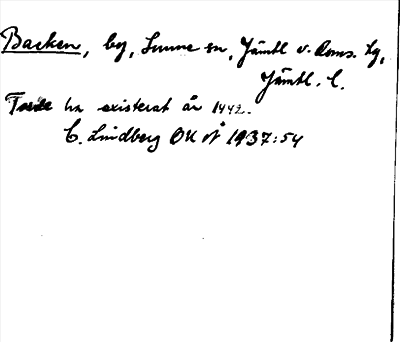 Backen, by, Sunne sn, Jämtl v. doms. hg,
Jämtl. l.
Torde ha existerat år 1442.
C. Lindberg OUÅ 1937:54